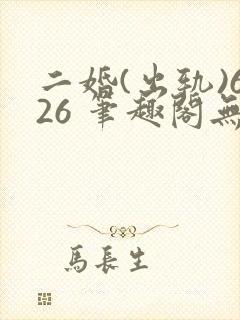 二婚(出轨)6
26 筆趣閣無
馬長生